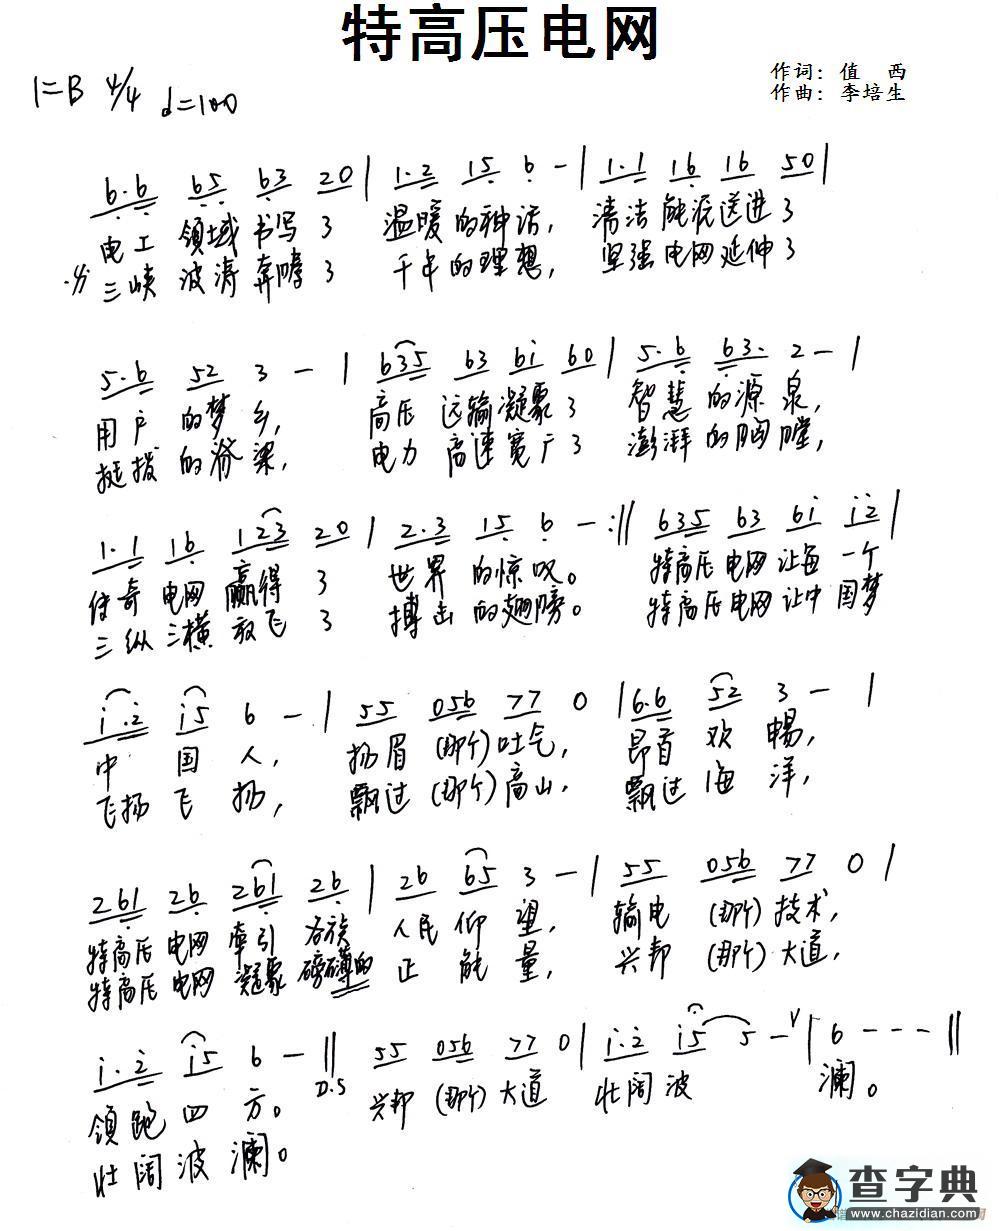 特高压电网
作词：值 西
作曲：李培生
1=B 4/4 d=100
6·6 65 63 20 | 1·2 15 6 - | 1·1 16 16 50 |
电工 领域 书写 了 温暖 的神话， 清洁 能源送进了
三峡 波涛 奔腾 了 千年 的理想， 坚强 电网延伸了
5·6 52 3 - | 635 63 6i 60 | 5·6 63· 2 - |
用户 的梦 乡， 高压 运输凝聚了 智慧 的源 泉，
挺拔 的脊 梁， 电力 高速宽广了 澎湃 的胸 膛，
1·1 16 123 20 | 2·3 15 6 - :|| 635 63 6i i2 |
传奇 电网 赢得 了 世界 的惊 叹。 特高压 电网 让每 一个
三纵 三横 放飞 了 搏击 的翅膀。 特高压 电网 让中 国梦
i·2 i5 6 - | 55 056 77 0 | 6·6 52 3 - |
中 国 人， 扬眉 (那个) 吐气， 昂首 欢 畅，
飞扬 飞 扬， 飘过 (那个) 高山， 飘过 海 洋，
261 26 261 26 | 26 65 3 - | 55 056 77 0 |
特高压 电网 牵引 各族 人民 仰 望， 输电 (那个) 技术，
特高压 电网 凝聚 磅礴的 正 能 量， 兴邦 (那个) 大道，
i·2 i5 6 - || 55 056 77 0 | i·2 i5 5 - V | 6 - - - ||
D.S
领跑 四 方。 兴邦 (那个) 大道 壮阔 波 澜。
壮阔 波 澜。
查字典
www.chazidian.com